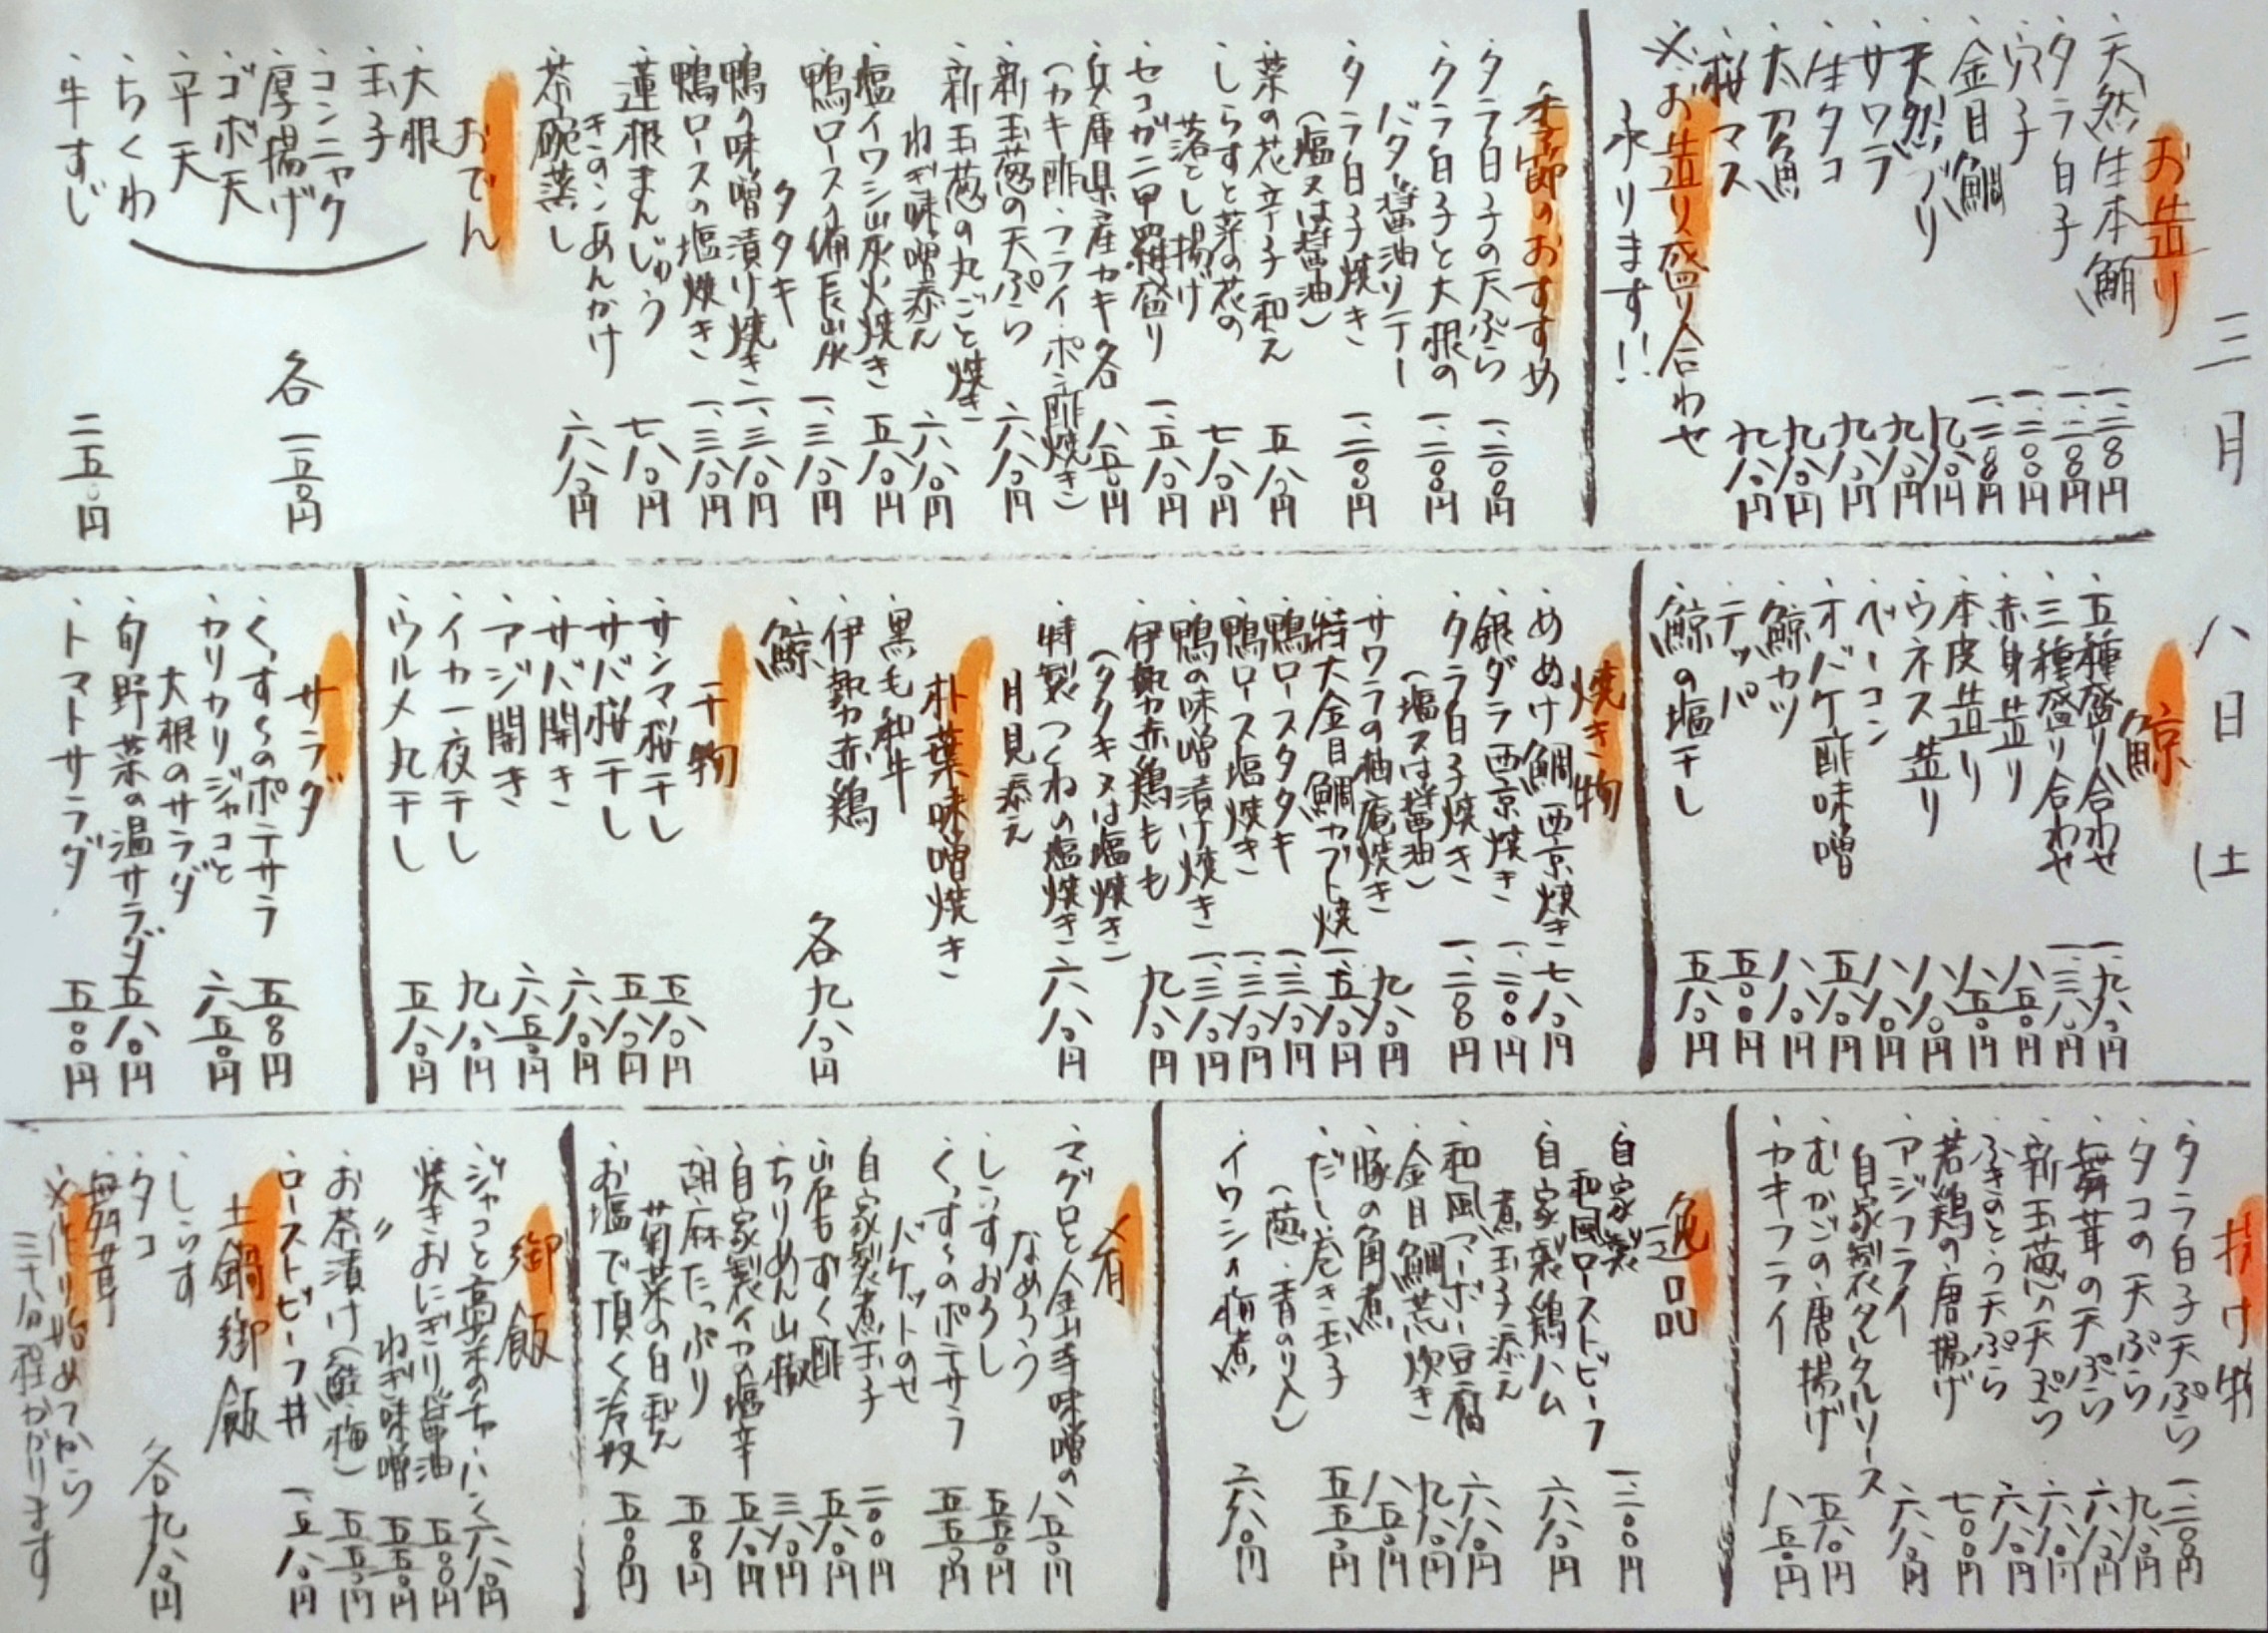 三月八日(土)
お造り
・天然生本鮪 一、二〇〇円
・タラ白子 一、二〇〇円
・穴子 一、二〇〇円
・金目鯛 一、二〇〇円
・天然ブリ 九八〇円
・サワラ 九八〇円
・生タコ 九八〇円
・太刀魚 九八〇円
・桜マス 九八〇円
※お造り盛り合わせ
承ります!!
季節のおすすめ
・タラ白子の天ぷら 一、二〇〇円
・タラ白子と大根の
バター醤油ソテー 一、二〇〇円
・タラ白子焼き
(塩又は醤油) 一、二〇〇円
・菜の花辛子和え 五八〇円
・しらすと菜の花の
落とし揚げ 七八〇円
・セコガニ甲羅盛り 一、五八〇円
・兵庫県産カキ 各八五〇円
(カキ酢・フライ・ポン酢焼き)
・新玉葱の天ぷら 六八〇円
・新玉葱の丸ごと焼き
ねぎ味噌添え 六八〇円
・塩イワシ炭火焼き 五八〇円
・鴨ロース備長炭
タタキ 一、三八〇円
・鴨の味噌漬け焼き 一、三八〇円
・鴨ロースの塩焼き 一、三八〇円
・蓮根まんじゅう
きのこあんかけ 七八〇円
・茶碗蒸し 六八〇円
おでん
・大根
・玉子
・コンニャク
・厚揚げ
・ゴボ天
・平天
・ちくわ
各一五〇円
・牛すじ 二五〇円
鯨
・五種盛り合わせ 一、九八〇円
・三種盛り合わせ 一、三八〇円
・赤身造り 八五〇円
・本皮造り 八五〇円
・ウネス造り 八八〇円
・ベーコン 八八〇円
・オバケ酢味噌 五八〇円
・鯨カツ 八八〇円
・テッパ 五〇〇円
・鯨の塩干し 五八〇円
焼き物
・めぬけ鯛西京焼き 七八〇円
・銀ダラ西京焼き 一、二〇〇円
・タラ白子焼き
(塩又は醤油) 一、二〇〇円
・サワラの柚庵焼き 九八〇円
・特大金目鯛カブト焼 一、五八〇円
・鴨ロースタタキ 一、三八〇円
・鴨ロース塩焼き 一、三八〇円
・鴨の味噌漬け焼き 一、三八〇円
・伊勢赤鶏もも
(タタキ又は塩焼き) 九八〇円
・特製つくねの塩焼き
月見添え 六八〇円
朴葉味噌焼き
・黒毛和牛
・伊勢赤鶏
・鯨
各九八〇円
干物
・サンマ桜干し 五八〇円
・サバ桜干し 五八〇円
・サバ開き 六八〇円
・アジ開き 六五〇円
・イカ一夜干し 九八〇円
・ウルメ丸干し 五八〇円
サラダ
・くっす〜のポテサラ 五五〇円
・カリカリジャコと
大根のサラダ 六五〇円
・旬野菜の温サラダ 五八〇円
・トマトサラダ 五〇〇円
揚げ物
・タラ白子天ぷら 一、二〇〇円
・タコの天ぷら 九八〇円
・舞茸の天ぷら 六八〇円
・新玉葱の天ぷら 六八〇円
・ふきのとう天ぷら 六八〇円
・若鶏の唐揚げ 七〇〇円
・アジフライ
自家製タルタルソース 六八〇円
・むかごの唐揚げ 五八〇円
・カキフライ 八五〇円
逸品
・自家製
和風ローストビーフ 一、二〇〇円
・自家製鶏ハム
煮玉子添え 六八〇円
・和風マーボー豆腐 六八〇円
・金目鯛荒炊き 九八〇円
・豚の角煮 八五〇円
・だし巻き玉子
(葱・青のり入) 五五〇円
・イワシの梅煮 六八〇円
肴
・マグロと金山寺味噌の
なめろう 八五〇円
・しらすおろし 五五〇円
・くっす〜のポテサラ
バケットのせ 五五〇円
・自家製煮玉子 二〇〇円
・岩もずく酢 五八〇円
・ちりめん山椒 三八〇円
・自家製イカの塩辛 五八〇円
・胡麻たっぷり
菊菜の白和え 五八〇円
・お塩で頂く冷奴 五〇〇円
御飯
・ジャコと高菜のチャーハン 六八〇円
・焼きおにぎり醤油 五〇〇円
・〃 ねぎ味噌 五五〇円
・お茶漬け(鮭・梅) 五五〇円
・ローストビーフ丼 一、五八〇円
土鍋御飯
・しらす
・タコ
・舞茸
各九八〇円
※作り始めてから
三十分程かかります